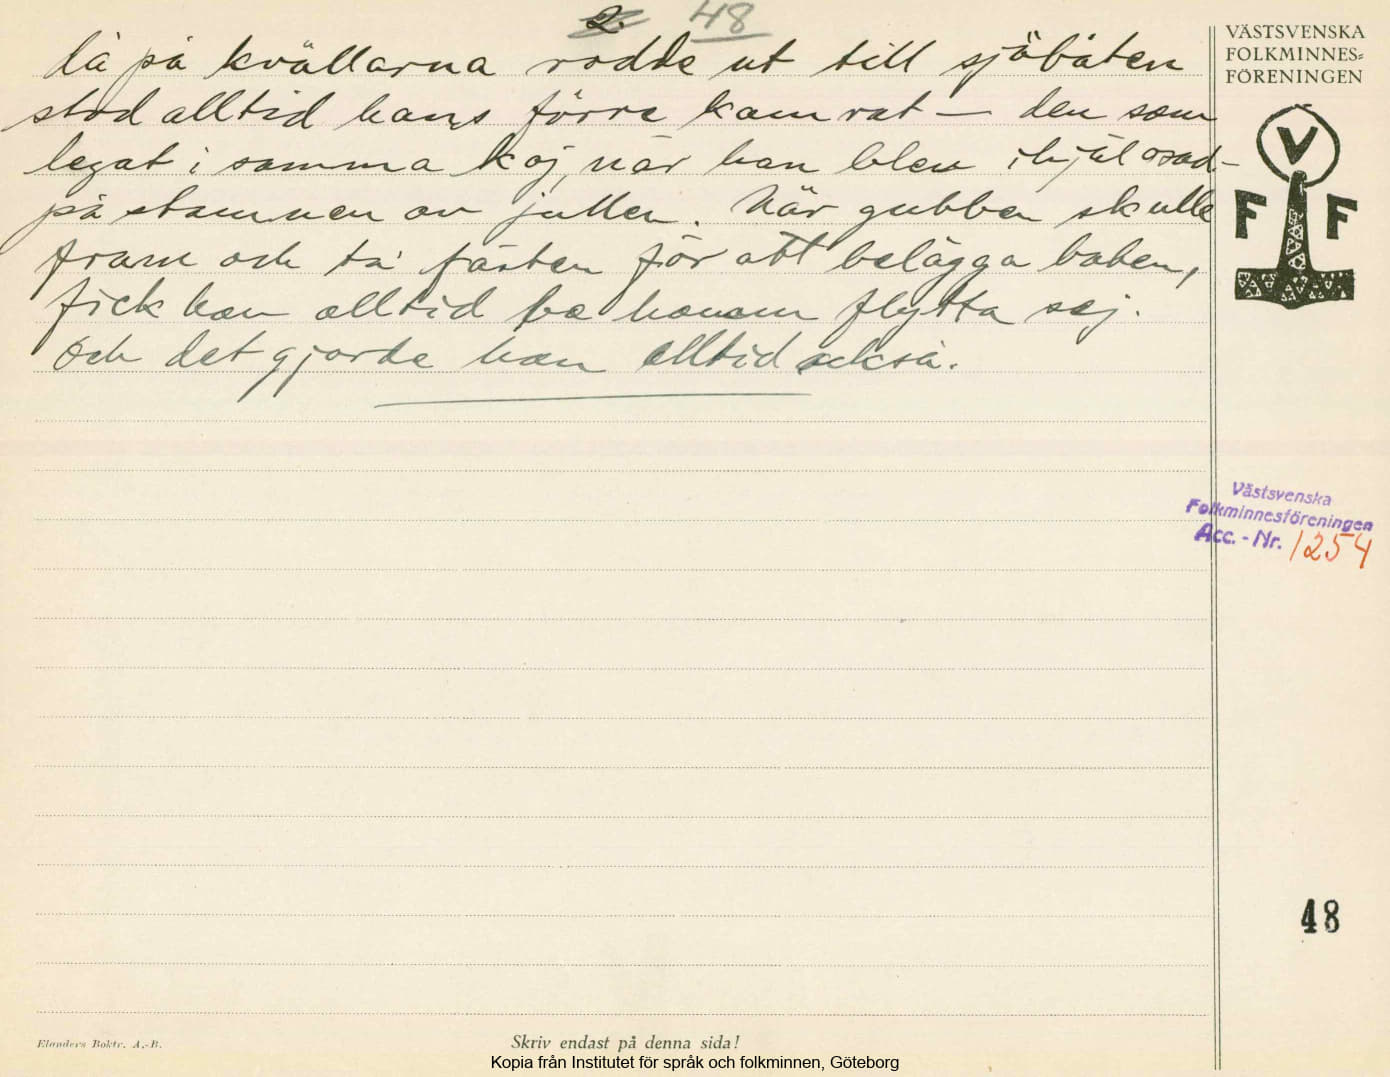 2. 48
då på kvällarna rodde ut till sjöbåten
stod alltid hans förre kamrat — den som
legat i samma koj, när han blev ihjäl
på stammen av jullen. När gubben skulle
fram och ta fästen för att belägga båten,
fick han alltid be honom flytta sej.
Och det gjorde han alltid också.
VÄSTSVENSKA
FOLKMINNES-
FÖRENINGEN
V
F F
Västsvenska
Folkminnesföreningen
Acc. - Nr. 1254
48
Elanders Boktr. A.-B.
Skriv endast på denna sida!
Kopia från Institutet för språk och folkminnen, Göteborg